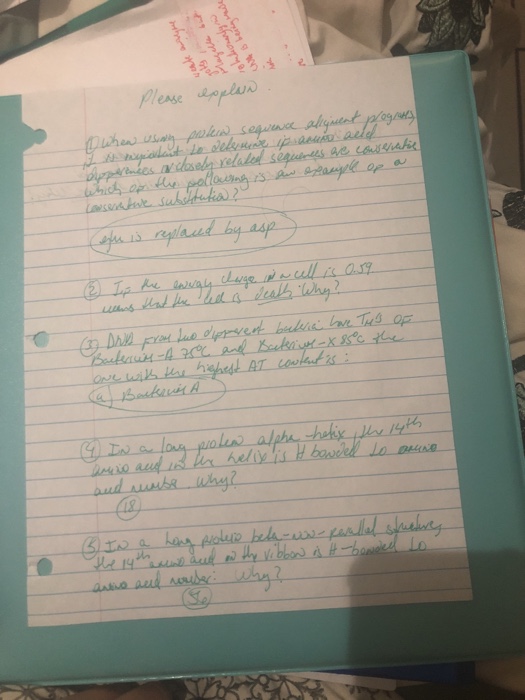 Please explain
① When using protein sequence aligment programs,
it is important to determine if amino acid
differences in closely related sequences are conservative
which of the following is an example of a
conservative substitution?
glu is replaced by asp
② If the energy charge in a cell is 0.59
means that the cell is death. Why?
③ DNA from two different bacteria have TMS OF
Bacterium-A 75°C and Bacterium-X 85°C the
one with the highest AT content is:
(a) Bacterium A
④ In a long protein alpha-helix, the 14th
amino acid in the helix is H bonded to amino
acid number. Why?
18
⑤ In a long protein beta- - parallel structure,
the 14th amino acid on the ribbon is H-bonded to
amino acid number: Why?